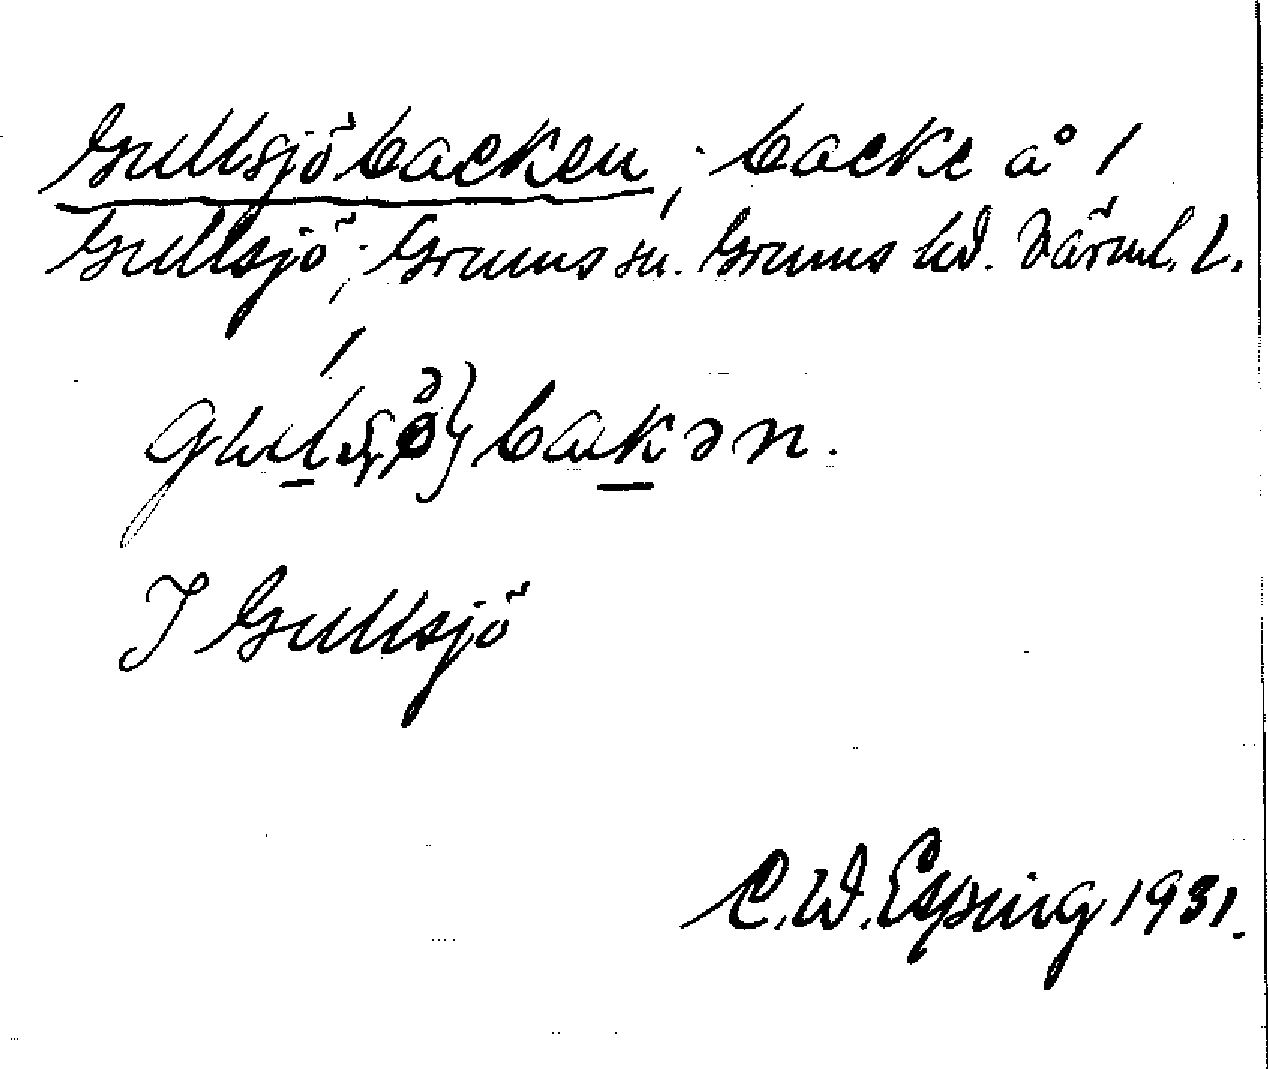 Gullsjöbacken; backe å 1
Gullsjö; Grums sn. Grums hd. Värml. l.
bakən.
I Gullsjö
C. W. Esping 1931.